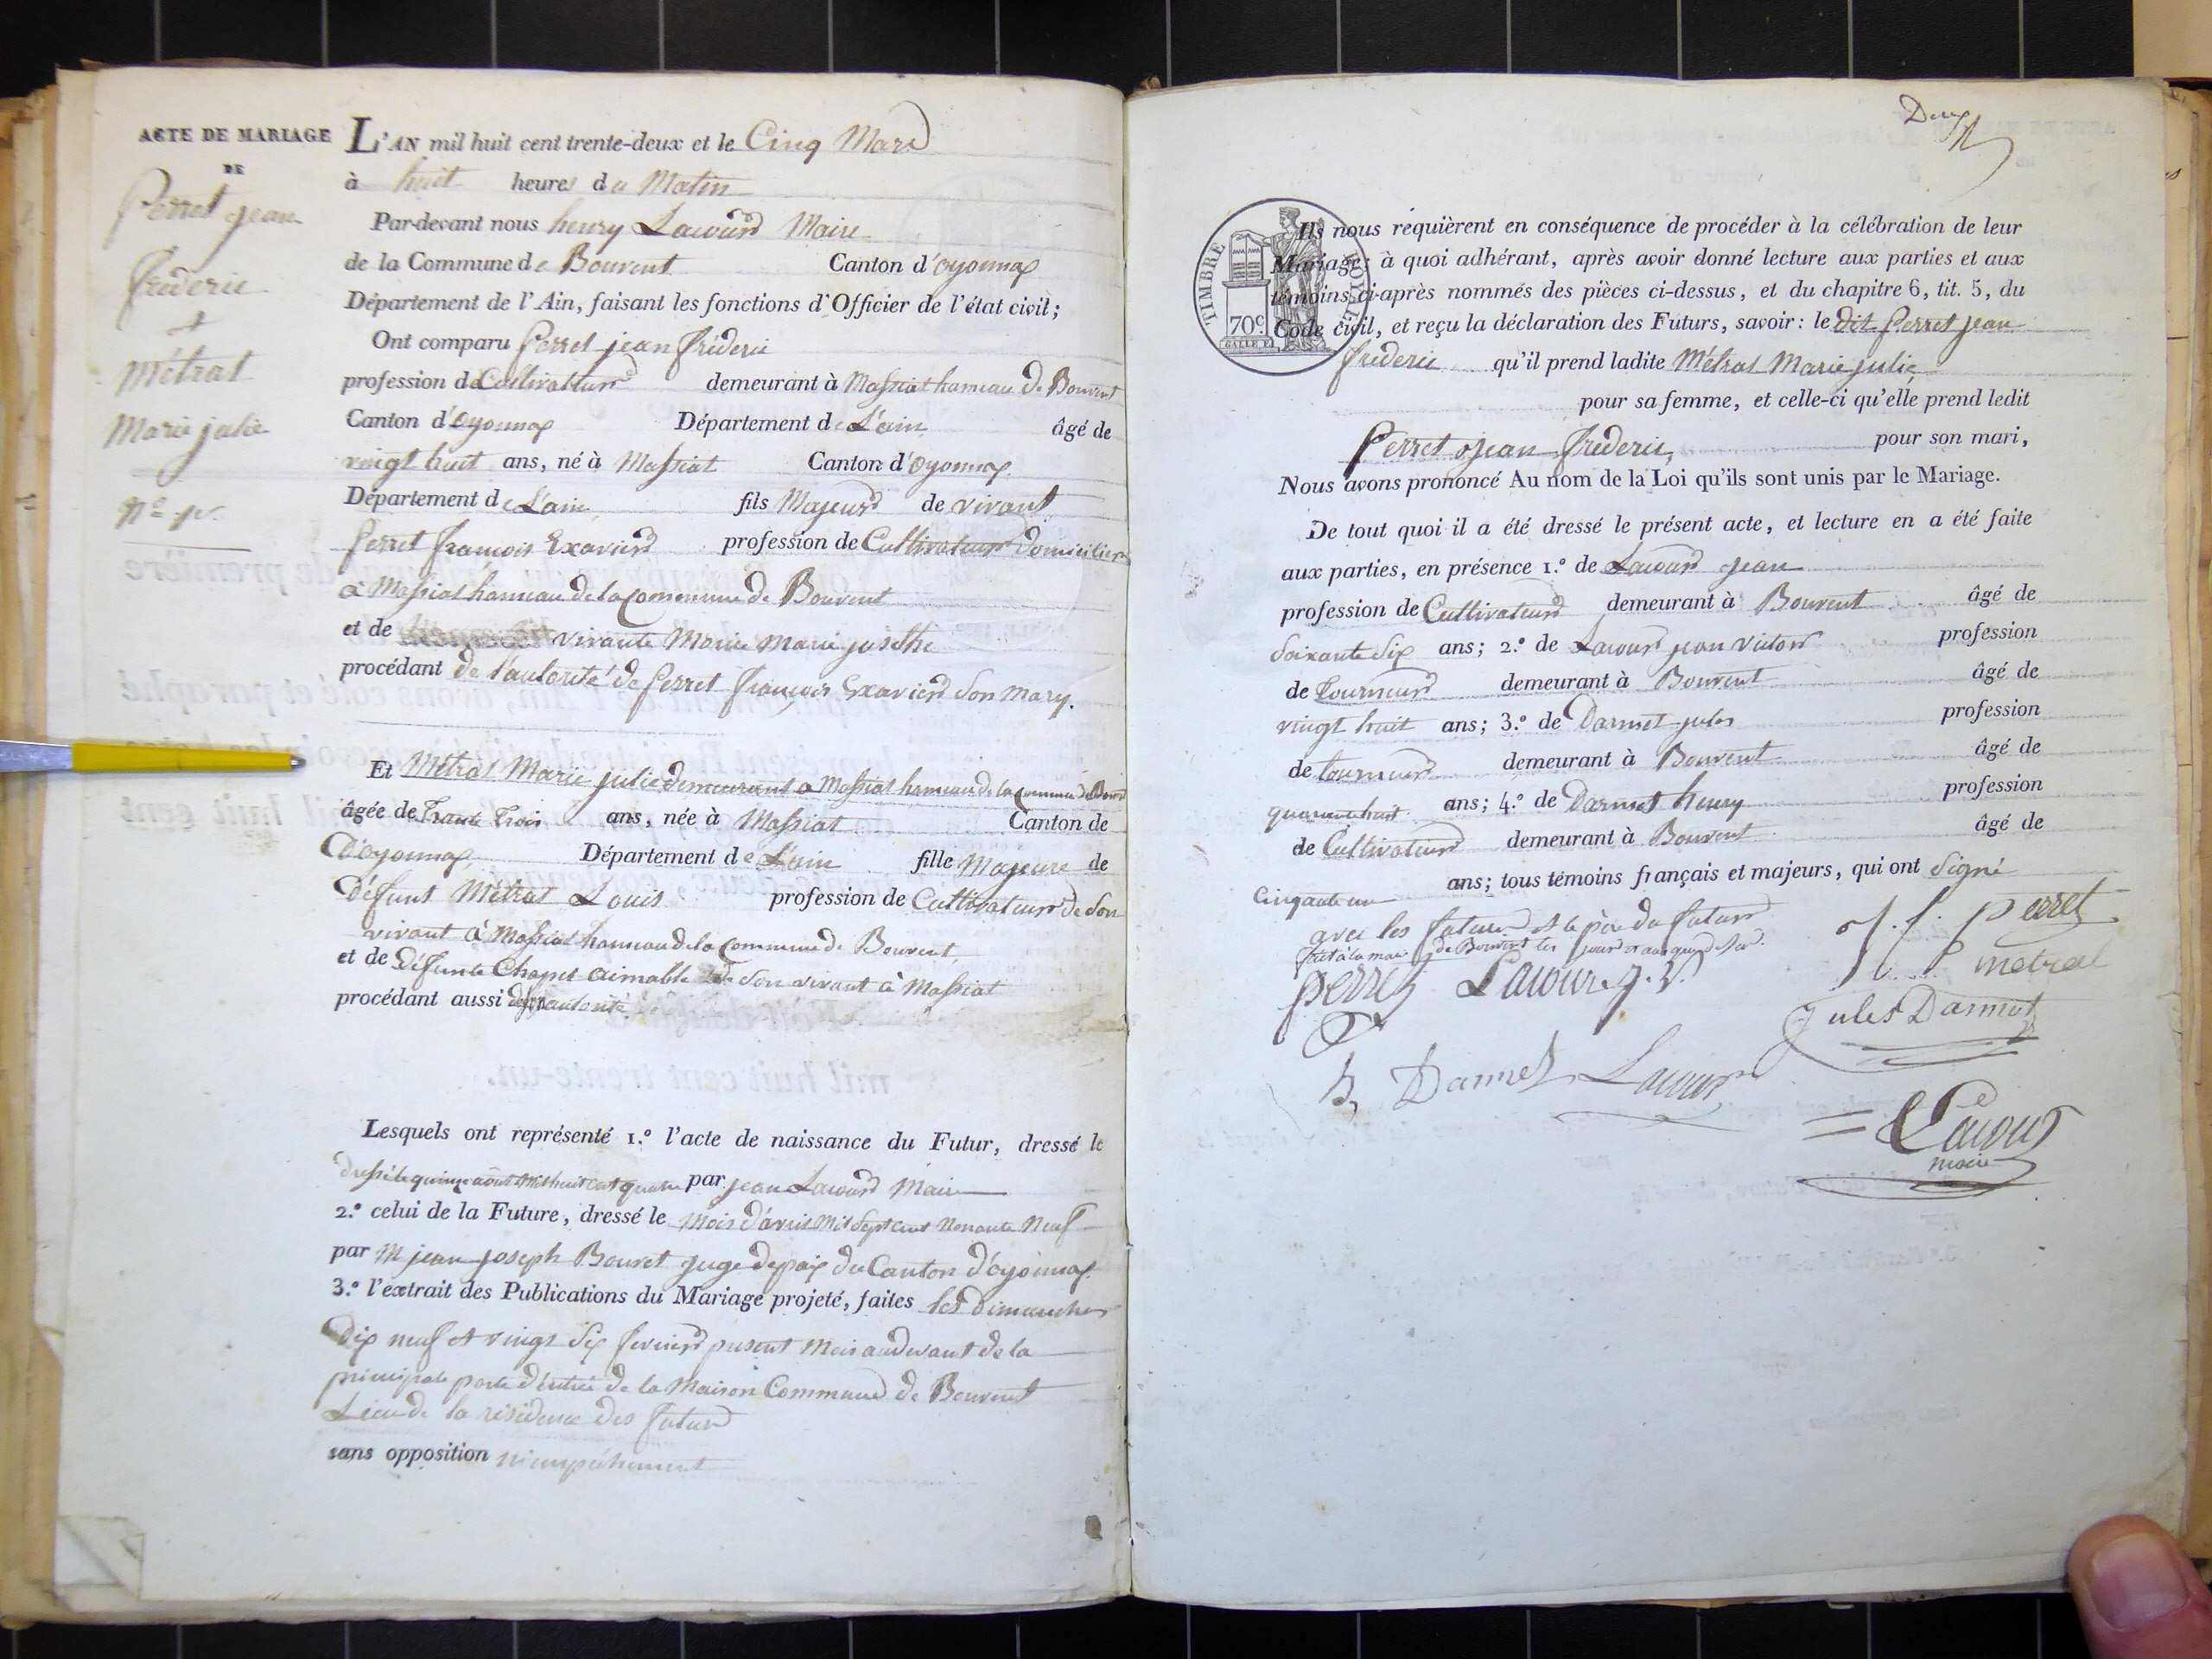 ACTE DE MARIAGE
DE
Perret jean
frederic
&
Métrat
Marie julie
L'AN mil huit cent trente-deux et le Cinq Mars
à huit heures du Matin
Par-devant nous henry Lacour Maire
de la Commune de Bouvent Canton d'oyonnax
Département de l'Ain, faisant les fonctions d'Officier de l'état civil;
Ont comparu Perret jean frederic
profession de Cultivateur demeurant à Massiat hameau de Bouvent
Canton d'Oyonnax Département de L'ain âgé de
vingt huit ans, né à Massiat Canton d'Oyonnax
Département de L'ain fils Majeur de vivant
Perret françois Exavier profession de Cultivateur domicilier
à Massiat hameau de la Commune de Bouvent
et de vivante Marie Marie josethe
procédant de l'autorité de Perret françois Exavier son mary.
Et Métrat Marie julie demeurant a Massiat hameau de la Commune de Bouvent
âgée de Trante Trois ans, née à Massiat Canton de
D'oyonnax Département de L'ain fille Majeure de
Défunt Métrat Louis profession de Cultivateur de son
vivant à Massiat hameau de la Commune de Bouvent,
et de Défunte Chapel aimable de son vivant à Massiat
procédant aussi autorité
Lesquels ont représenté 1.º l'acte de naissance du Futur, dressé le
dressé le quinze août Mil huit cent quatre par jean Lacour Maire
2.º celui de la Future, dressé le Mois d'avril Mil Sept Cent Nonante Neuf
par M jean joseph Bouvet juge de paix du Canton d'oyonnax
3.º l'extrait des Publications du Mariage projeté, faites les dimanches
Dix neuf et vingt six fevrier present Mois au devant de la
principale porte d'entrée de la Maison Commune de Bouvent
Lieu de la résidence des futur
sans opposition ni empêchement
Deux
TIMBRE ROYAL
70c
Ils nous requièrent en conséquence de procéder à la célébration de leur
Mariage; à quoi adhérant, après avoir donné lecture aux parties et aux
témoins ci-après nommés des pièces ci-dessus, et du chapitre 6, tit. 5, du
Code civil, et reçu la déclaration des Futurs, savoir: le dit Perret jean
frederic qu'il prend ladite Métrat Marie julie
pour sa femme, et celle-ci qu'elle prend ledit
Perret jean frederic, pour son mari,
Nous avons prononcé Au nom de la Loi qu'ils sont unis par le Mariage.
De tout quoi il a été dressé le présent acte, et lecture en a été faite
aux parties, en présence 1.º de Lacour jean
profession de Cultivateur demeurant à Bouvent âgé de
Soixante Six ans; 2.º de Lacour jean victor profession
de Tourneur demeurant à Bouvent âgé de
vingt huit ans; 3.º de Darmet jules profession
de tourneur demeurant à Bouvent âgé de
quarante huit ans; 4.º de Darmet henry profession
de Cultivateur demeurant à Bouvent âgé de
Cinquante un ans; tous témoins français et majeurs, qui ont signé
avec les future et le père du futur
fait à la mairie de Bouvent les jour et an que dessus.
J. f. perret
perret Lacour j. V. métral
Jules Darmet
h Darmet Lacour
Lacour
maire